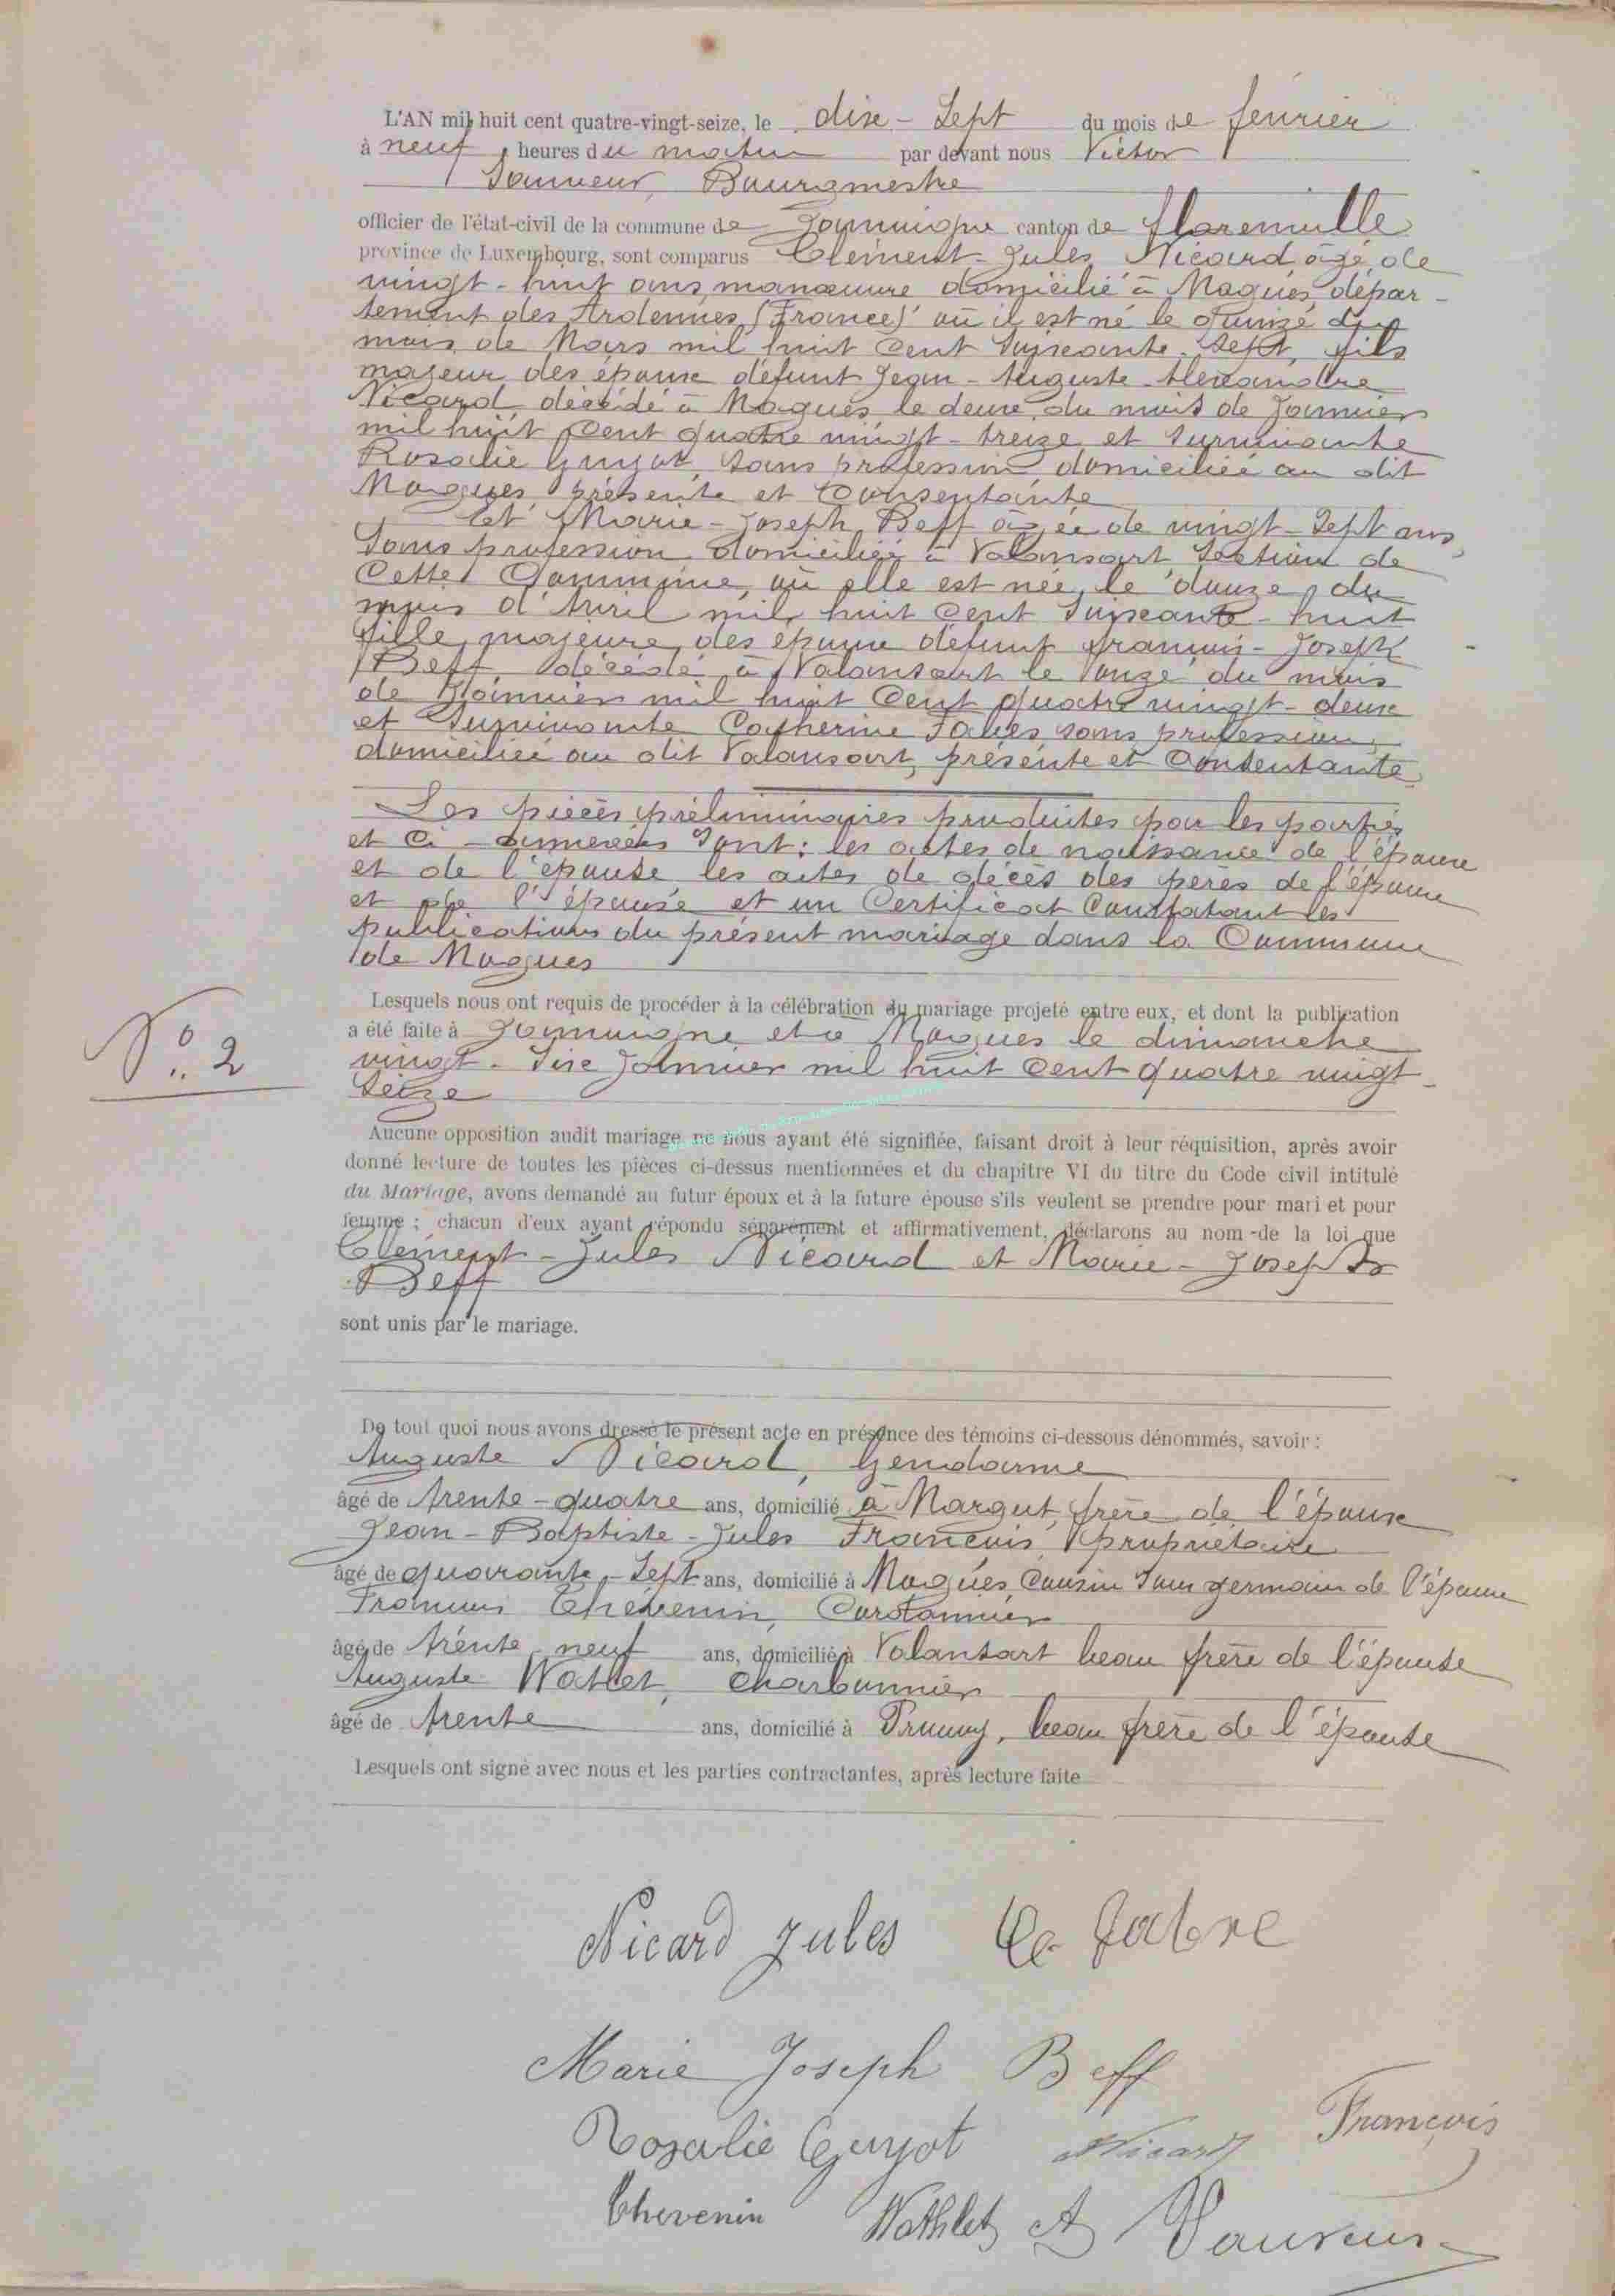 L'AN mil huit cent quatre-vingt-seize, le dix-Sept du mois de février
à neuf heures du matin par devant nous Victor
Sauveur, Bourgmestre
officier de l'état-civil de la commune de Jamoigne canton de florenville
province de Luxembourg, sont comparus Clément-Jules Nicard âgé de
vingt-huit ans, manœuvre domicilié à Mogues, dépar-
tement des Ardennes (France) où il est né le quinze du
mois de Mars mil huit Cent Soixante-Sept, fils
majeur des époux défunt Jean-Auguste-Alexandre
Nicard décédé à Mogues le deux du mois de Janvier
mil huit Cent quatre vingt-treize et survivante
Rosalie Guyot, sans profession, domiciliée au dit
Mogues, présente et Consentante
Et Marie-Joseph Beff âgée de vingt-Sept ans,
Sans profession domiciliée à Valansart Section de
Cette Commune, où elle est née, le douze du
mois d'Avril mil huit Cent Soixante-huit
fille majeure des époux défunt françois-Joseph
Beff, décédé à Valansart le onze du mois
de Janvier mil huit Cent quatre vingt-deux
et Survivante Catherine sans profession,
domiciliée au dit Valansart, présente et Consentante.
Les pièces préliminaires produites par les parties
et Ci-annexées Sont: les actes de naissance de l'époux
et de l'épouse les actes de décès des pères de l'époux
et de l'épouse et un Certificat Constatant les
publications du présent mariage dans la Commune
de Mogues
Lesquels nous ont requis de procéder à la célébration du mariage projeté entre eux, et dont la publication
a été faite à Jamoigne et à Mogues le dimanche
N° 2
vingt-Six Janvier mil huit Cent quatre vingt-
Seize
Aucune opposition audit mariage ne nous ayant été signifiée, faisant droit à leur réquisition, après avoir
donné lecture de toutes les pièces ci-dessus mentionnées et du chapitre VI du titre du Code civil intitulé
du Mariage, avons demandé au futur époux et à la future épouse s'ils veulent se prendre pour mari et pour
femme ; chacun d'eux ayant répondu séparément et affirmativement, déclarons au nom-de la loi que
Clément-Jules Nicard et Marie-Joseph
Beff
sont unis par le mariage.
De tout quoi nous avons dressé le présent acte en présence des témoins ci-dessous dénommés, savoir :
Auguste Nicard, Gendarme
âgé de trente-quatre ans, domicilié à Margut, frère de l'époux
Jean-Baptiste-Jules François, propriétaire
âgé de quarante-Sept ans, domicilié à Mogues, Cousin Sous germain de l'époux
François Chevenin, Cantonnier
âgé de trente neuf ans, domicilié à Valansart beau frère de l'épouse
Auguste Watlet, Charbonnier
âgé de trente ans, domicilié à Prouvy, beau frère de l'épouse
Lesquels ont signé avec nous et les parties contractantes, après lecture faite
Nicard Jules
Marie Joseph Beff
Rosalie Guyot Nicard François
Chevenin Wathlet A Sauveur